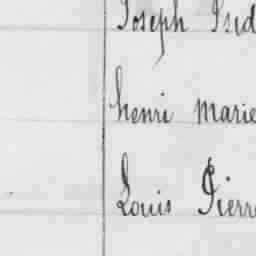 Joseph Isid
henri marie
Louis Pierre